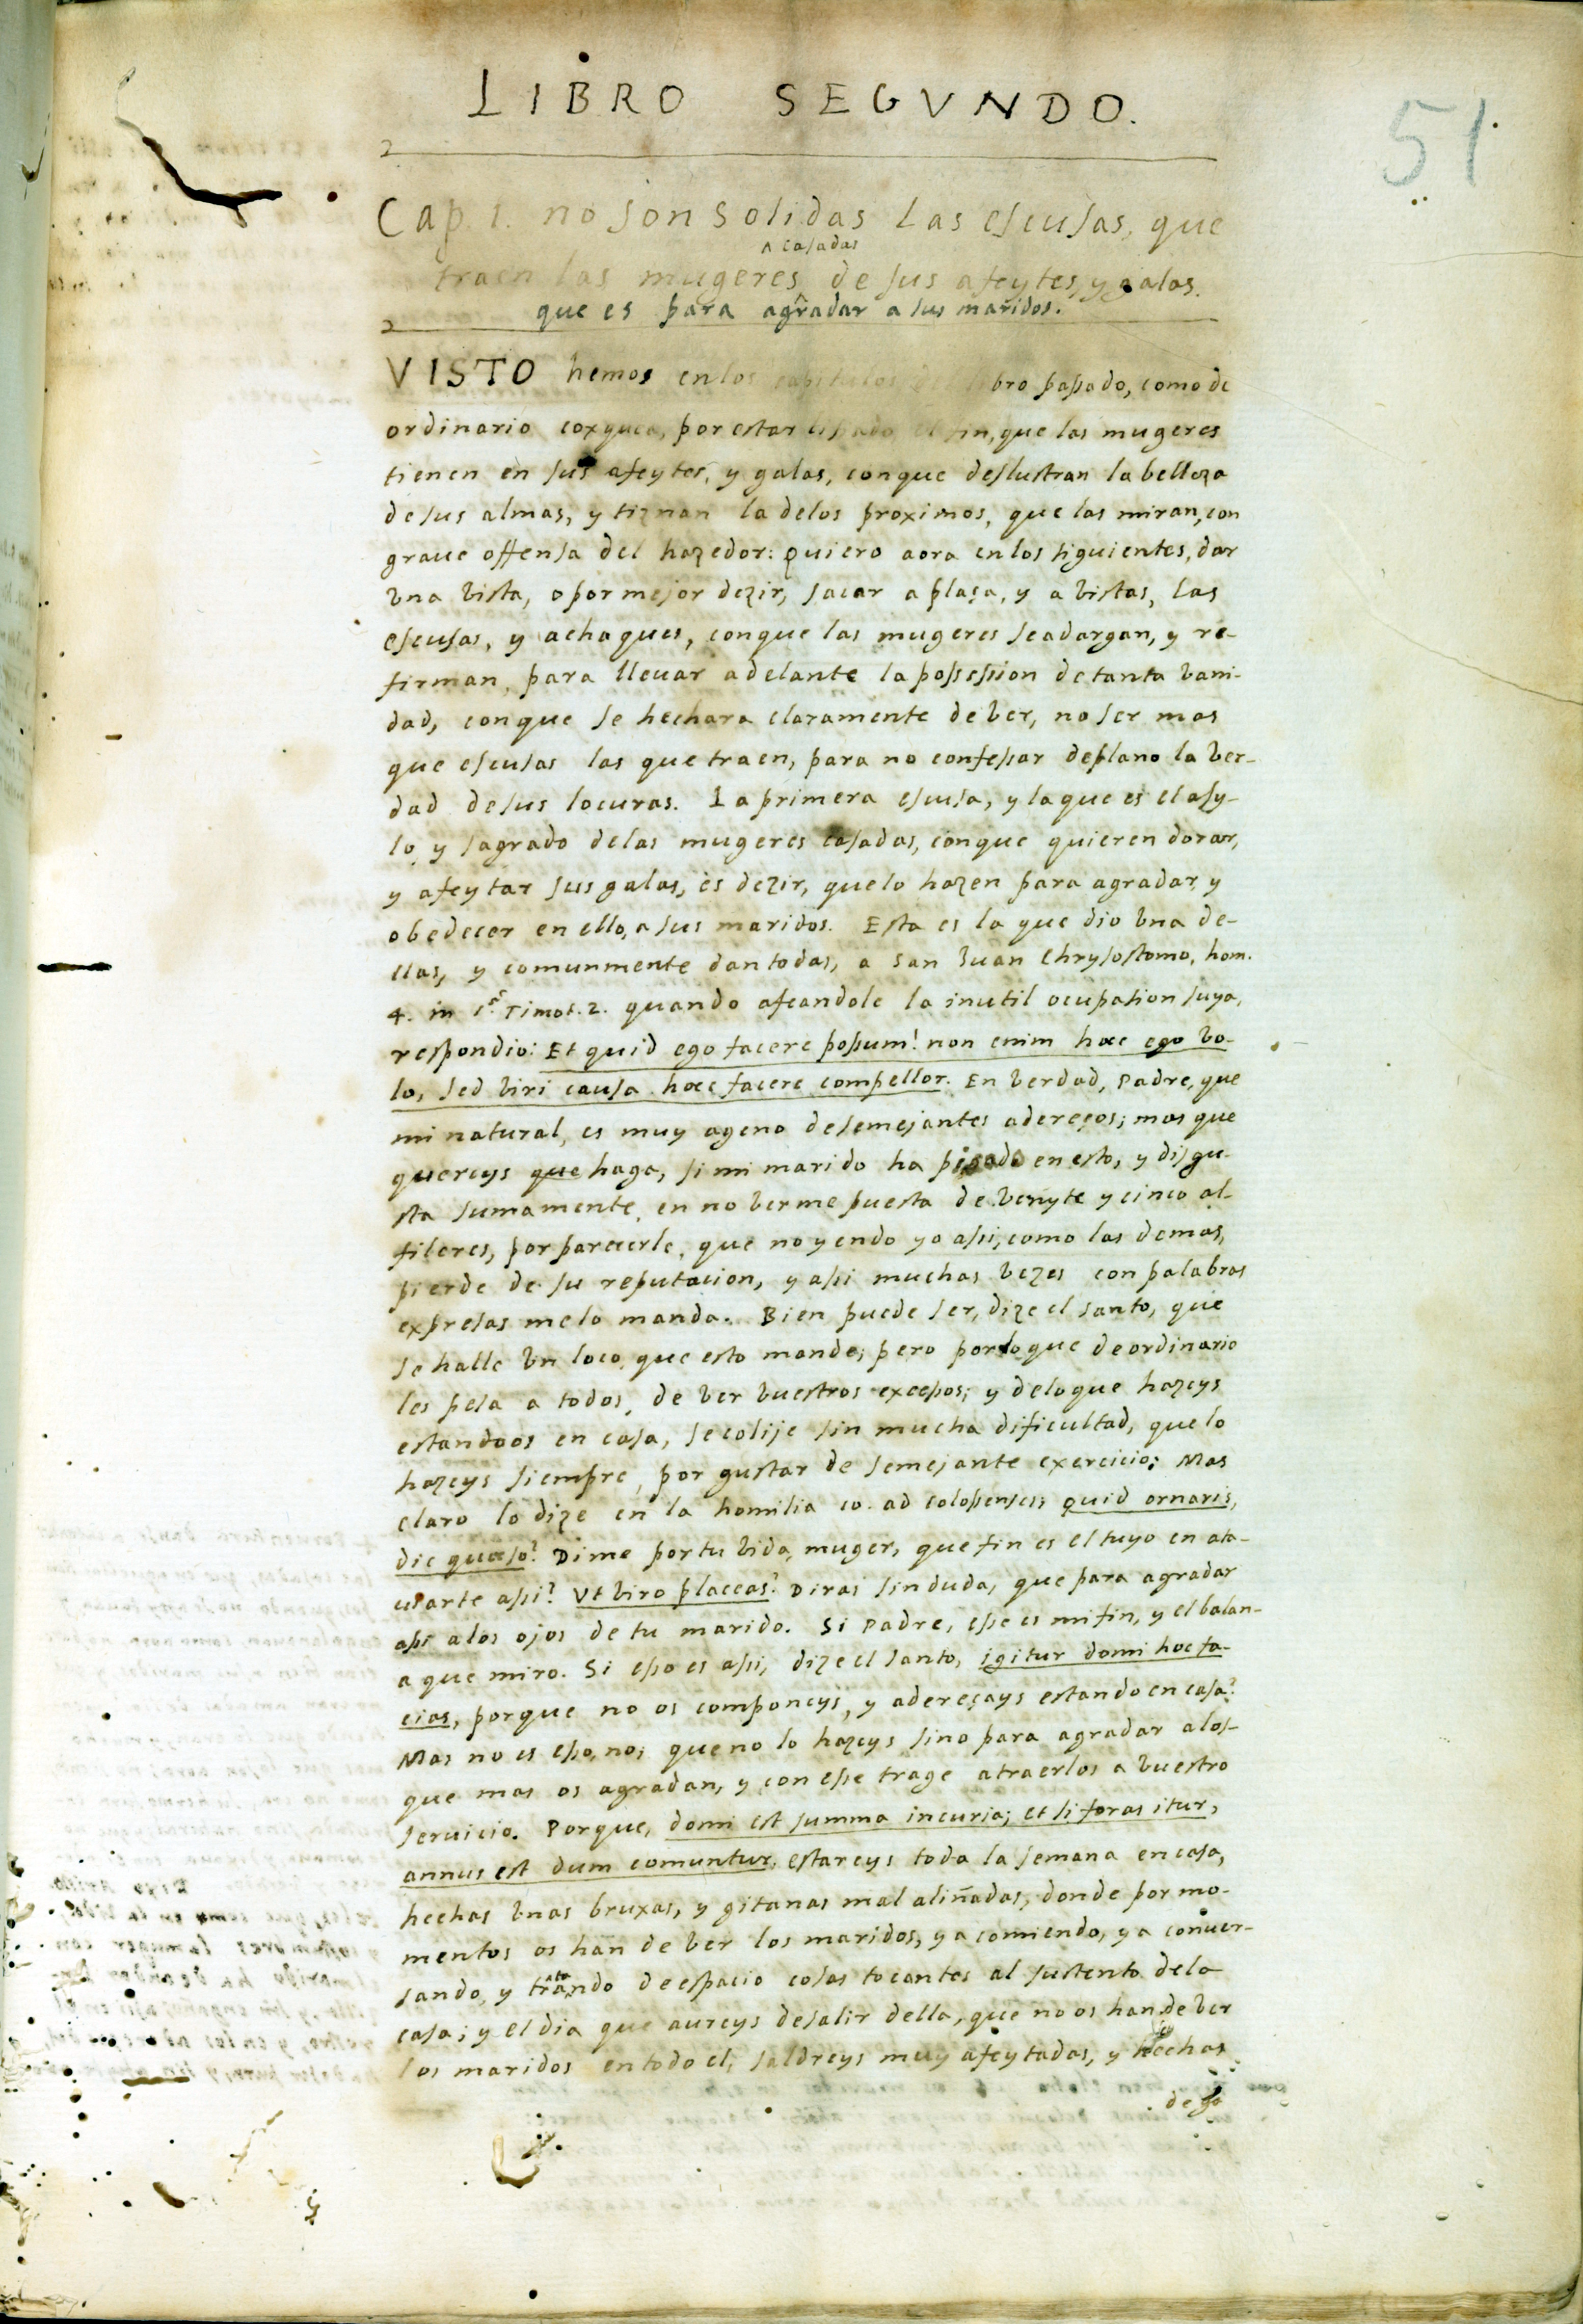 LIBRO SEGVNDO.
51
Cap. 1. no son solidas las escusas, que
^ casadas
traen las mugeres, de sus afeytes, y galas.
que es para agradar a sus maridos.
VISTO hemos en los capitulos del libro passado, como de
ordinario coxquea, por estar lisiado el fin, que las mugeres
tienen en sus afeytes, y galas, con que deslustran la belleza
de sus almas, y tiznan la de los proximos, que las miran, con
graue offensa del hazedor: Quiero aora en los siguientes, dar
vna vista, o por mejor dezir, sacar a plaça, y a vistas, las
escusas, y achaques, con que las mugeres se adargan, y re-
firman, para lleuar adelante la possession de tanta vani-
dad, con que se hechara claramente de ver, no ser mas
que escusas las que traen, para no confessar de plano la ver-
dad de sus locuras. La primera escusa, y la que es el asy-
lo, y sagrado de las mugeres casadas, con que quieren dorar,
y afeytar sus galas, es dezir, que lo hazen para agradar, y
obedecer en ello, a sus maridos. Esta es la que dio vna de-
llas, y comunmente dan todas, a San Iuan Chrysostomo, hom.
4. in 1.ª Timot. 2. quando afeandole la inutil ocupasion suya,
respondio: Et quid ego facere possum! non enim hoc ego vo-
lo, sed viri causa hoc facere compellor. En verdad, Padre, que
mi natural, es muy ageno de semejantes adereços; mas que
quereys que haga, si mi marido ha picado en esto, y disgu-
sta sumamente, en no verme puesta de venyte y cinco al-
fileres, por parecerle, que no yendo yo assi, como las demas,
pierde de su reputacion, y assi muchas vezes con palabras
expresas me lo manda. Bien puede ser, dize el santo, que
se halle vn loco, que esto mande; pero por lo que de ordinario
les pesa a todos, de ver vuestros excessos; y de lo que hazeys
estandoos en casa, se colije sin mucha dificultad, que lo
hazeys siempre, por gustar de semejante exercicio: Mas
claro lo dize en la homilia 10. ad colossenses; quid ornaris,
dic quæso? Dime por tu vida, muger, que fin es el tuyo en ata-
uiarte assi? Vt viro placeas? Diras sin duda, que para agradar
assi a los ojos de tu marido. Si Padre, esse es mi fin, y el balan-
a que miro. Si esso es assi, dize el santo, igitur domi hoc fa-
cias, porque no os componeys, y adereçays estando en casa?
Mas no es esso, no; que no lo hazeys sino para agradar a los
que mas os agradan, y con esse trage atraerlos a vuestro
seruicio. Porque, domi est summa incuria; et si foras itur,
annus est dum comuntur. estareys toda la semana en casa,
hechas vnas bruxas, y gitanas mal aliñadas, donde por mo-
mentos os han de ver los maridos, ya comiendo, ya conuer-
sando, y tratando de espacio cosas tocantes al sustento de la
casa; y el dia que aureys de salir della, que no os han de ver
los maridos en todo el, saldreys muy afeytadas, y hechas